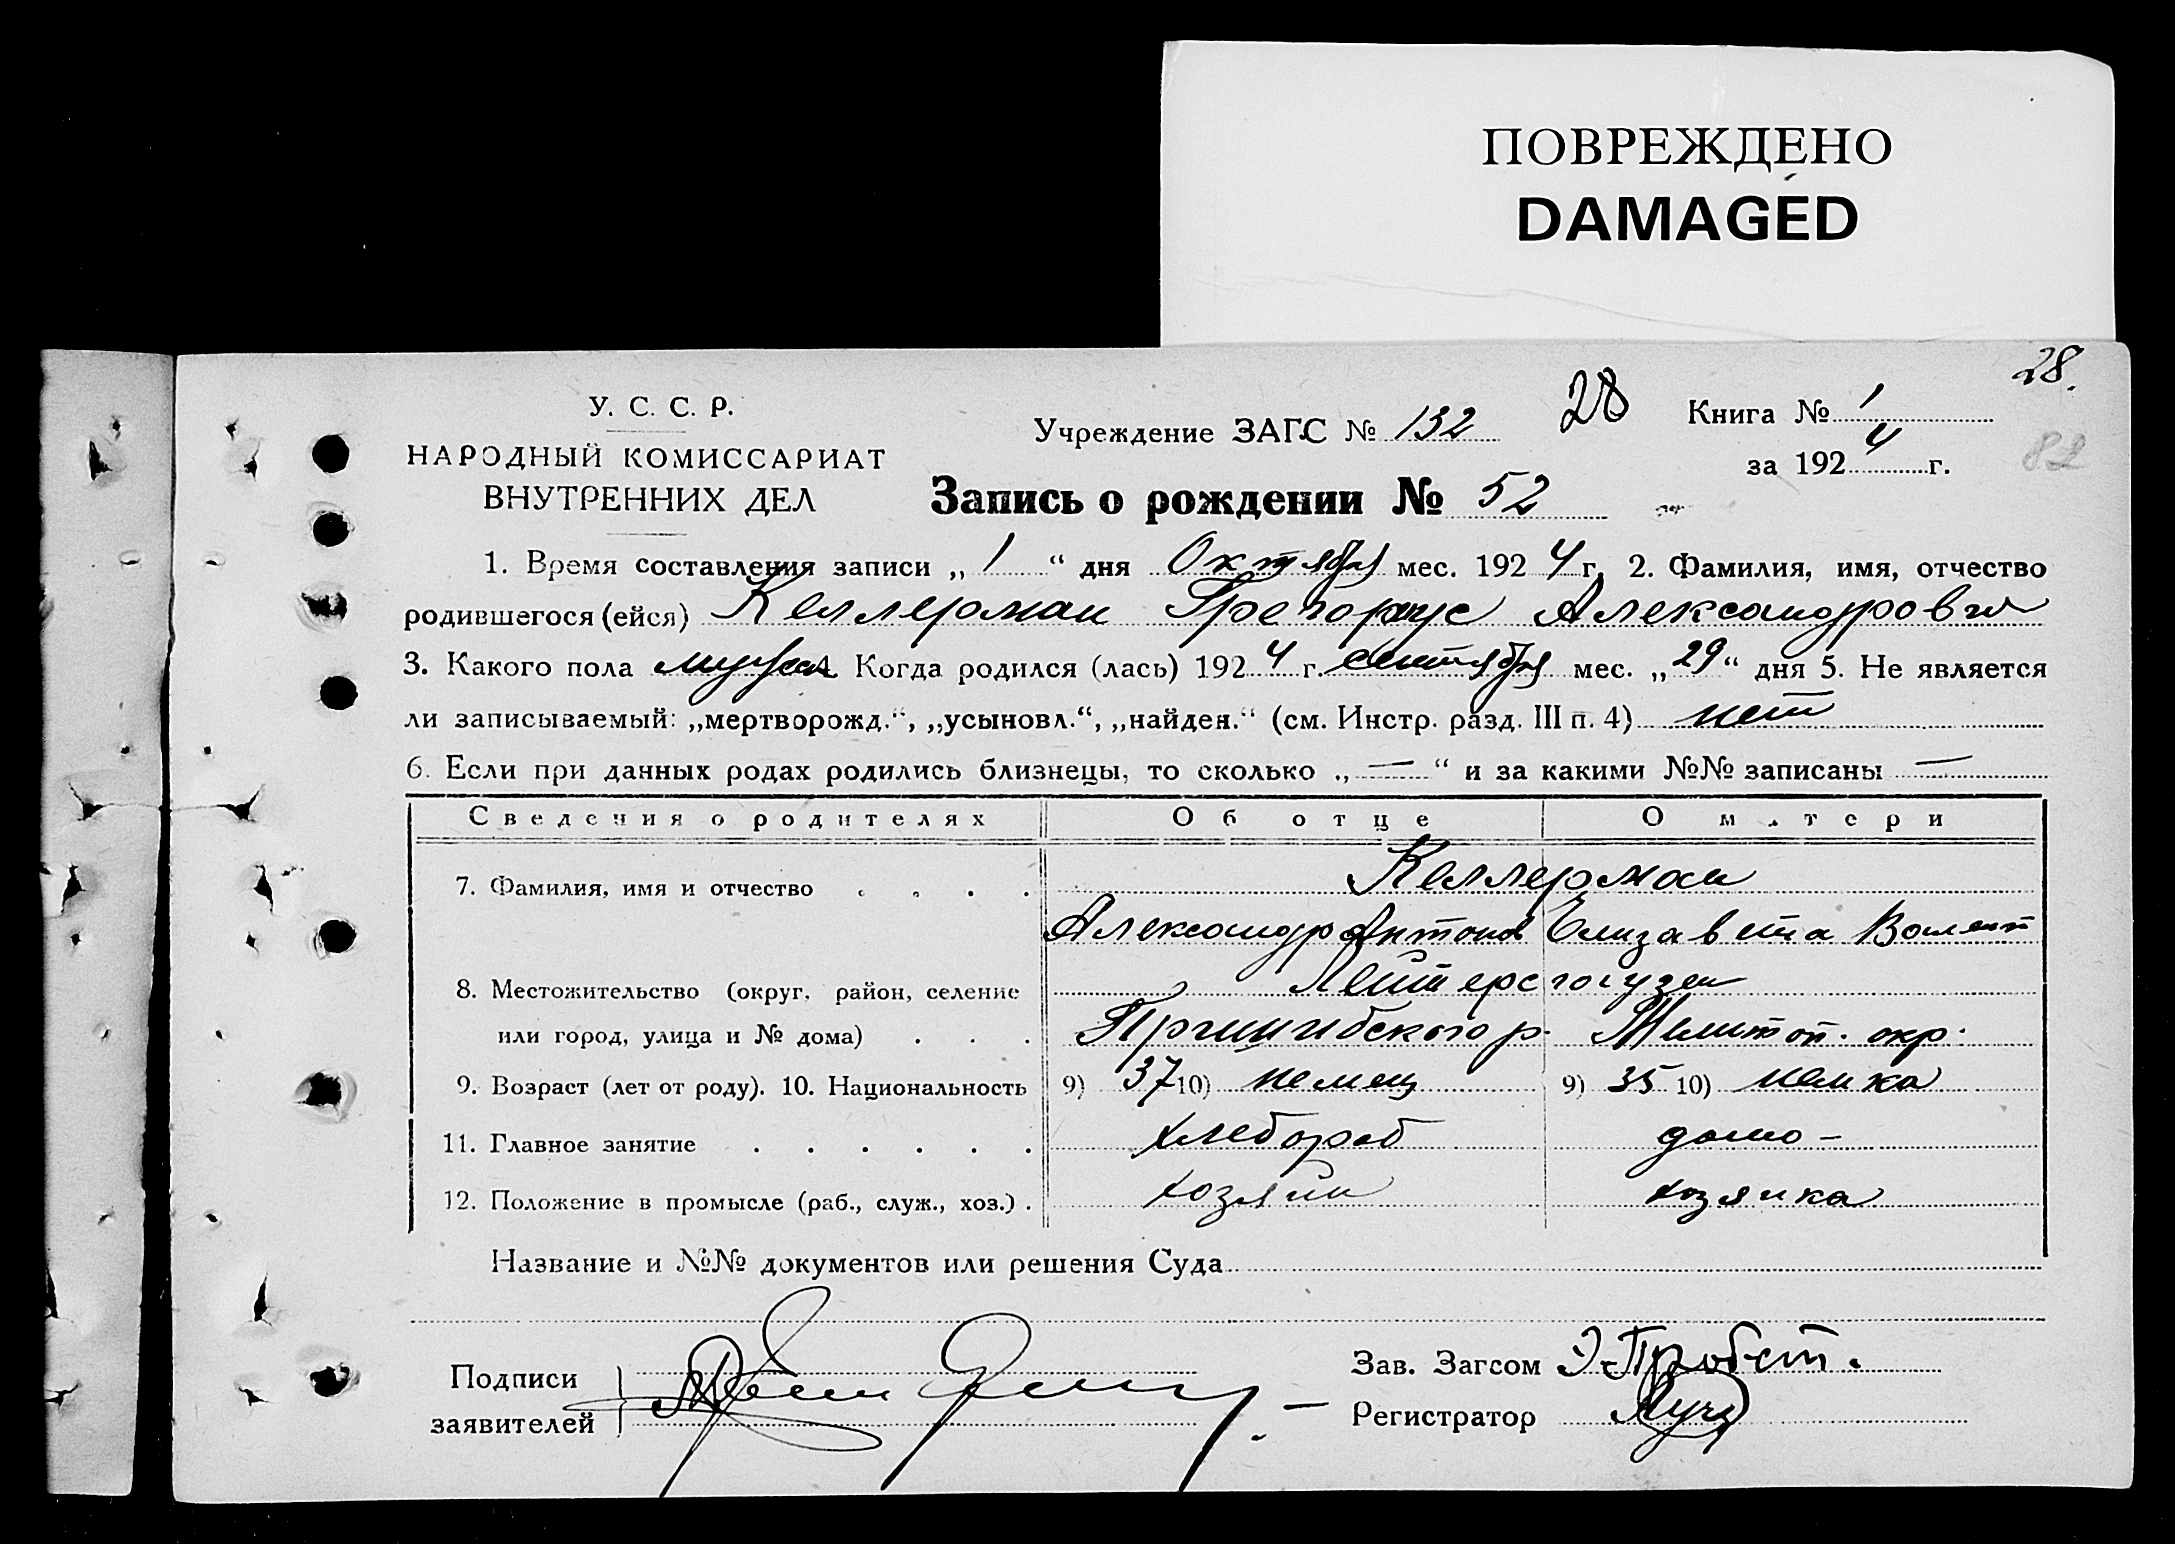 ПОВРЕЖДЕНО
DAMAGED
28.
У. С. С. Р.
НАРОДНЫЙ КОМИССАРИАТ
ВНУТРЕННИХ ДЕЛ
Учреждение ЗАГС № 132
28
Книга № 1
за 1924 г.
82
Запись о рождении № 52
1. Время составления записи „ 1 “ дня Октября мес. 1924 г. 2. Фамилия, имя, отчество
родившегося (ейся) Келлерман Грегориус Александрович
3. Какого пола мужск 4. Когда родился (лась) 1924 г. сентября мес. „29“ дня 5. Не является
ли записываемый: „мертворожд.“, „усыновл.“, „найден.“ (см. Инстр. разд. III п. 4) нет
6. Если при данных родах родились близнецы, то сколько „ — “ и за какими №№ записаны —
Сведения о родителях Об отце О матери
7. Фамилия, имя и отчество . . . . Келлерман
Александр Антонов Елизавета Валент
8. Местожительство (округ, район, селение
или город, улица и № дома) . . .
Пришибского р. Мелитоп. окр.
9. Возраст (лет от роду). 10. Национальность 9) 37 10) немец 9) 35 10) немка
11. Главное занятие . . . . . . хлебороб домо-
12. Положение в промысле (раб., служ., хоз.) . хозяин хозяйка
Название и №№ документов или решения Суда
Подписи
заявителей
Зав. Загсом Э. Пробст.
Регистратор